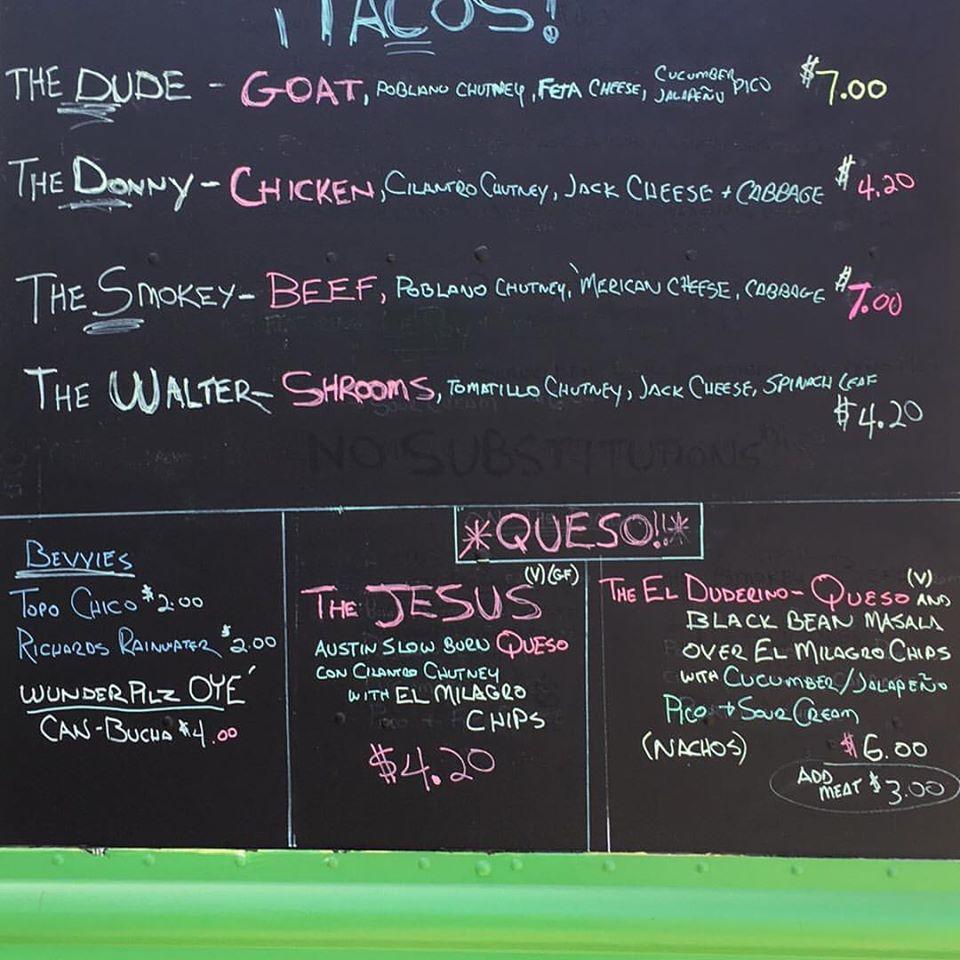 ¡TACOS!
THE DUDE - GOAT, POBLANO CHUTNEY, FETA CHEESE, CUCUMBER JALAPEÑO PICO $7.00
THE DONNY - CHICKEN, CILANTRO CHUTNEY, JACK CHEESE + CABBAGE $4.20
THE SMOKEY - BEEF, POBLANO CHUTNEY, 'MERICAN CHEESE, CABBAGE $7.00
THE WALTER - SHROOMS, TOMATILLO CHUTNEY, JACK CHEESE, SPINACH LEAF
$4.20
NO SUBSTITUTIONS
BEVVIES
TOPO CHICO $2.00
RICHARDS RAINWATER $2.00
WUNDERPILZ OYE'
CAN-BUCHA $4.00
*QUESO!!*
(V) (GF)
THE JESUS
AUSTIN SLOW BURN QUESO
CON CILANTRO CHUTNEY
WITH EL MILAGRO
CHIPS
$4.20
(V)
THE EL DUDERINO - QUESO AND
BLACK BEAN MASALA
OVER EL MILAGRO CHIPS
WITH CUCUMBER/JALAPEÑO
PICO + SOUR CREAM
(NACHOS) $6.00
ADD MEAT $3.00